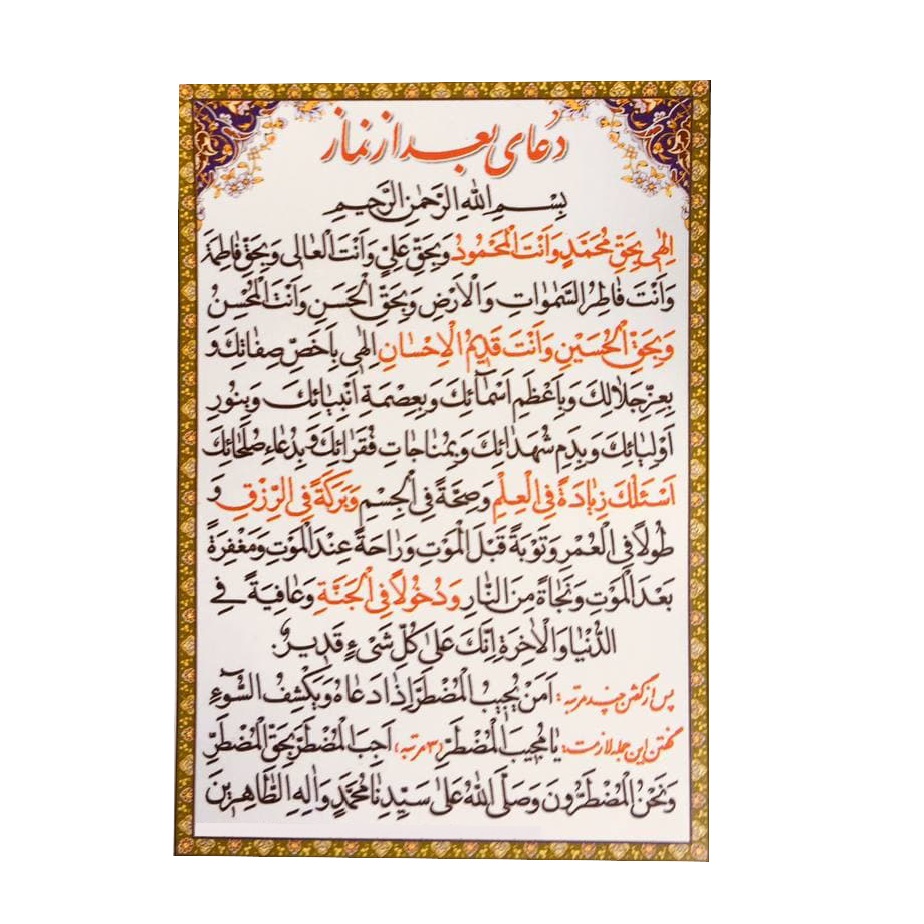 دعای بعد از نماز
بِسْمِ اللهِ الرَّحْمٰنِ الرَّحِیمِ
اِلٰهی بِحَقِّ مُحَمَّدٍ وَاَنْتَ الْمَحْمُودُ وَبِحَقِّ عَلِیٍّ وَاَنْتَ الْعٰالی وَبِحَقِّ فٰاطِمَةَ
وَاَنْتَ فٰاطِرُ السَّمٰوٰاتِ وَالْاَرْضِ وَبِحَقِّ الْحَسَنِ وَاَنْتَ الْمُحْسِنُ
وَبِحَقِّ الْحُسَیْنِ وَاَنْتَ قَدِیمُ الْاِحْسٰانِ اِلٰهی بِاَخَصِّ صِفٰاتِكَ وَ
بِعِزِّ جَلٰالِكَ وَبِاَعْظَمِ اَسْمٰآئِكَ وَبِعِصْمَةِ اَنْبِیٰائِكَ وَبِنُورِ
اَوْلِیٰائِكَ وَبِدَمِ شُهَدٰائِكَ وَبِمُنٰاجٰاتِ فُقَرٰائِكَ وَبِدُعٰاءِ صُلَحٰائِكَ
اَسْئَلُكَ زِیٰادَةً فِی الْعِلْمِ وَصِحَّةً فِی الْجِسْمِ وَبَرَكَةً فِی الرِّزْقِ وَ
طُولًا فِی الْعُمْرِ وَتَوْبَةً قَبْلَ الْمَوْتِ وَرٰاحَةً عِنْدَ الْمَوْتِ وَمَغْفِرَةً
بَعْدَ الْمَوْتِ وَنَجٰاةً مِنَ النّٰارِ وَدُخُولًا فِی الْجَنَّةِ وَعٰافِیَةً فِی
الدُّنْیٰا وَالْاٰخِرَةِ اِنَّكَ عَلیٰ كُلِّ شَیْءٍ قَدِیرٌ.
پس از گفتن چند مرتبه: اَمَّنْ یُجِیبُ الْمُضْطَرَّ اِذٰا دَعٰاهُ وَیَكْشِفُ السُّوٓءَ
گفتن این جمله لازمست: یٰا مُجِیبَ الْمُضْطَرِّ (۳ مرتبه) اَجِبَ الْمُضْطَرَّ بِحَقِّ الْمُضْطَرِّ
وَنَحْنُ الْمُضْطَرُّونَ وَصَلَّی اللهُ عَلیٰ سَیِّدِنٰا مُحَمَّدٍ وَاٰلِهِ الطّٰاهِرِینَ